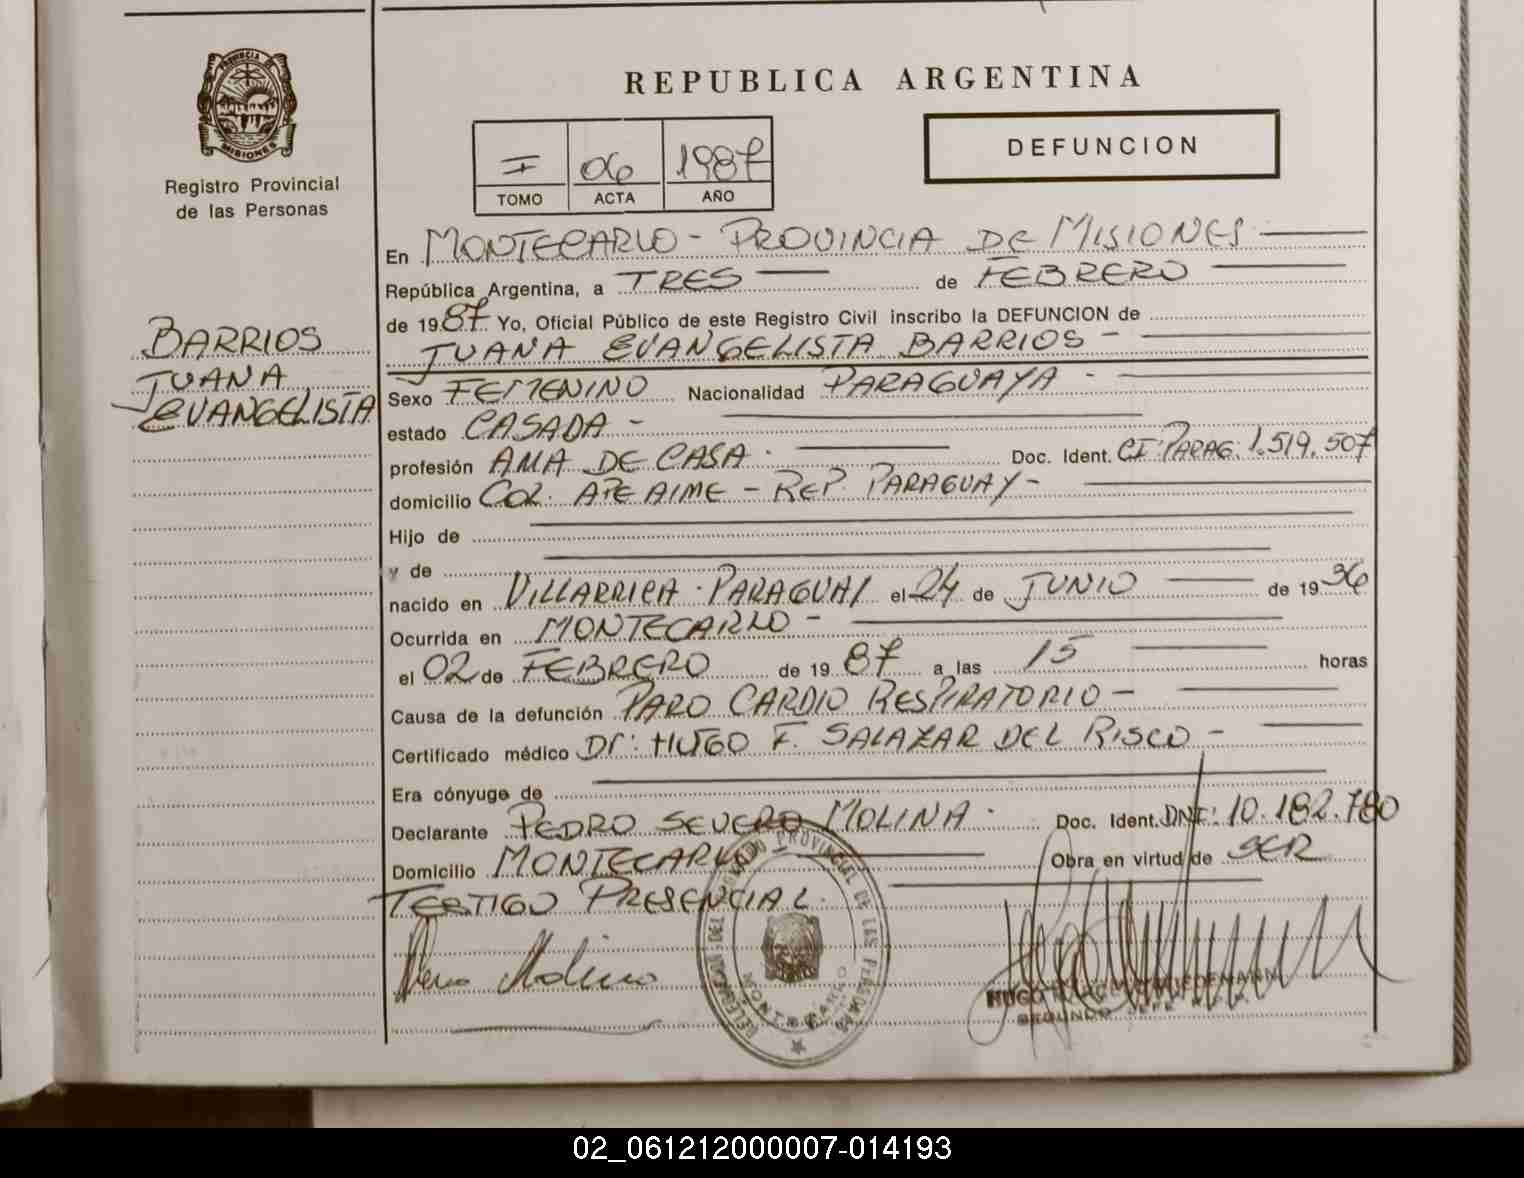 REPUBLICA ARGENTINA
PROVINCIA DE MISIONES
Registro Provincial
de las Personas
I 06 1987
TOMO ACTA AÑO
DEFUNCION
En MONTECARLO - PROVINCIA DE MISIONES
República Argentina, a TRES de FEBRERO
de 1987 Yo, Oficial Público de este Registro Civil inscribo la DEFUNCION de
JUANA EVANGELISTA BARRIOS -
BARRIOS
JUANA
EVANGELISTA
Sexo FEMENINO Nacionalidad PARAGUAYA -
estado CASADA -
profesión AMA DE CASA. Doc. Ident. CI: PARAG. 1.519.507
domicilio COL. APE AIME - REP. PARAGUAY -
Hijo de
y de
nacido en VILLARRICA - PARAGUAY el 24 de JUNIO de 1936
Ocurrida en MONTECARLO -
el 02 de FEBRERO de 1987 a las 15 horas
Causa de la defunción PARO CARDIO RESPIRATORIO -
Certificado médico Dr: HUGO F. SALAZAR DEL RISCO -
Era cónyuge de
Declarante PEDRO SEVERO MOLINA. Doc. Ident. DNI: 10.182.780
Domicilio MONTECARLO Obra en virtud de SER
TESTIGO PRESENCIAL.
Molina
PROVINCIAL DE LAS PERSONAS
MONTECARLO
HUGO
SEGUNDO JEFE
02_061212000007-014193